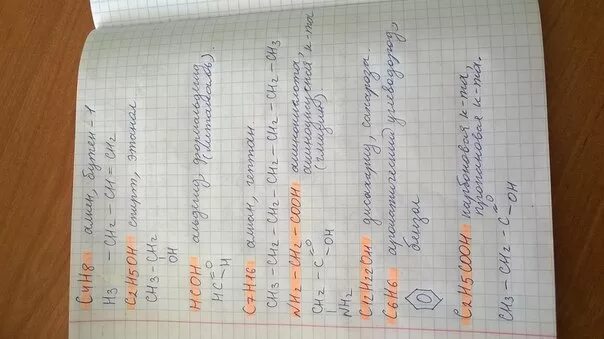 C4H8 алкен, бутен-1
H3 - CH2 - CH = CH2
C2H5OH спирт, этанол
CH3 - CH2
OH
HCOH альдегид, формальдегид
(метаналь)
HC=O
H
C7H16 алкан, гептан
CH3 - CH2 - CH2 - CH2 - CH2 - CH2 - CH3
NH2 - CH2 - COOH аминокислота,
аминоуксусная к-та
(глицин)
CH2 - C=O
OH
NH2
дисахарид, сахароза
C6H6 ароматический углеводород,
бензол
C2H5COOH карбоновая к-та,
пропановая к-та.
CH3 - CH2 - C=O
OH